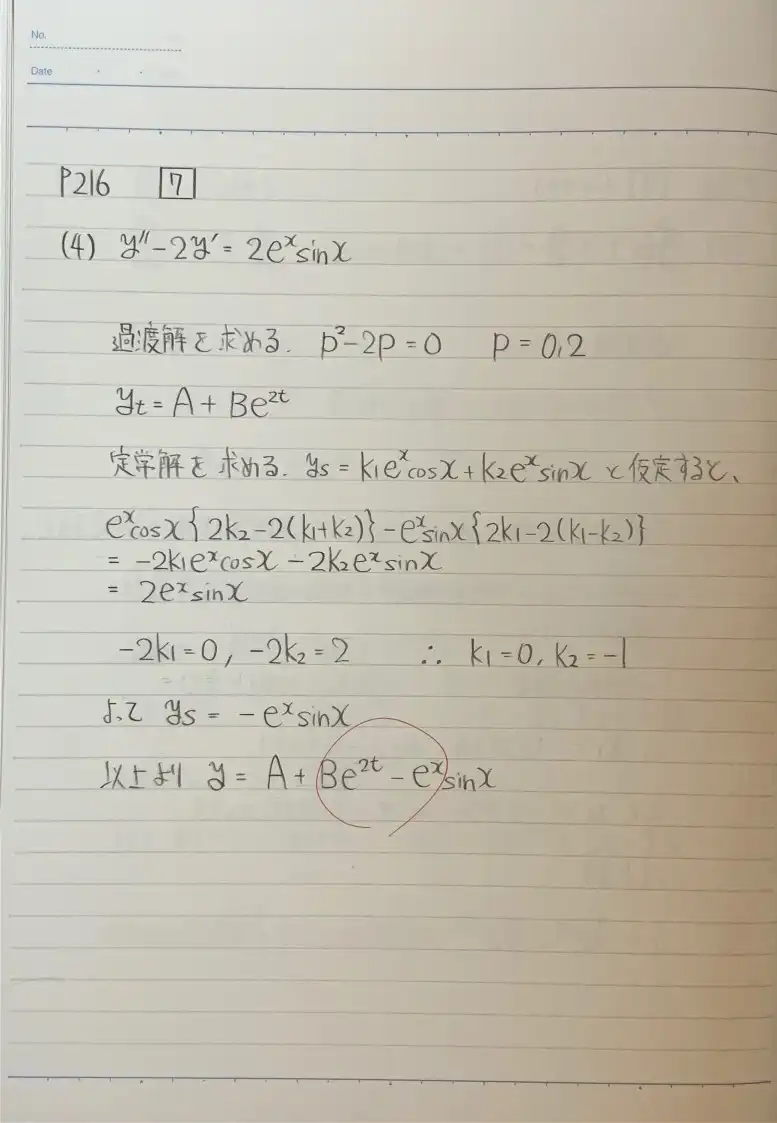 No.
Date
P216 7
(4) y''-2y' = 2eˣsinx
過渡解を求める. p²-2p=0 p=0,2
yt = A + Be²ᵗ
定常解を求める. ys = k₁eˣcosx + k₂eˣsinx と仮定すると、
eˣcosx{2k₂-2(k₁+k₂)}-eˣsinx{2k₁-2(k₁-k₂)}
= -2k₁eˣcosx - 2k₂eˣsinx
= 2eˣsinx
-2k₁=0, -2k₂=2 ∴ k₁=0, k₂=-1
よって ys = -eˣsinx
以上より y = A + Be²ᵗ - eˣsinx